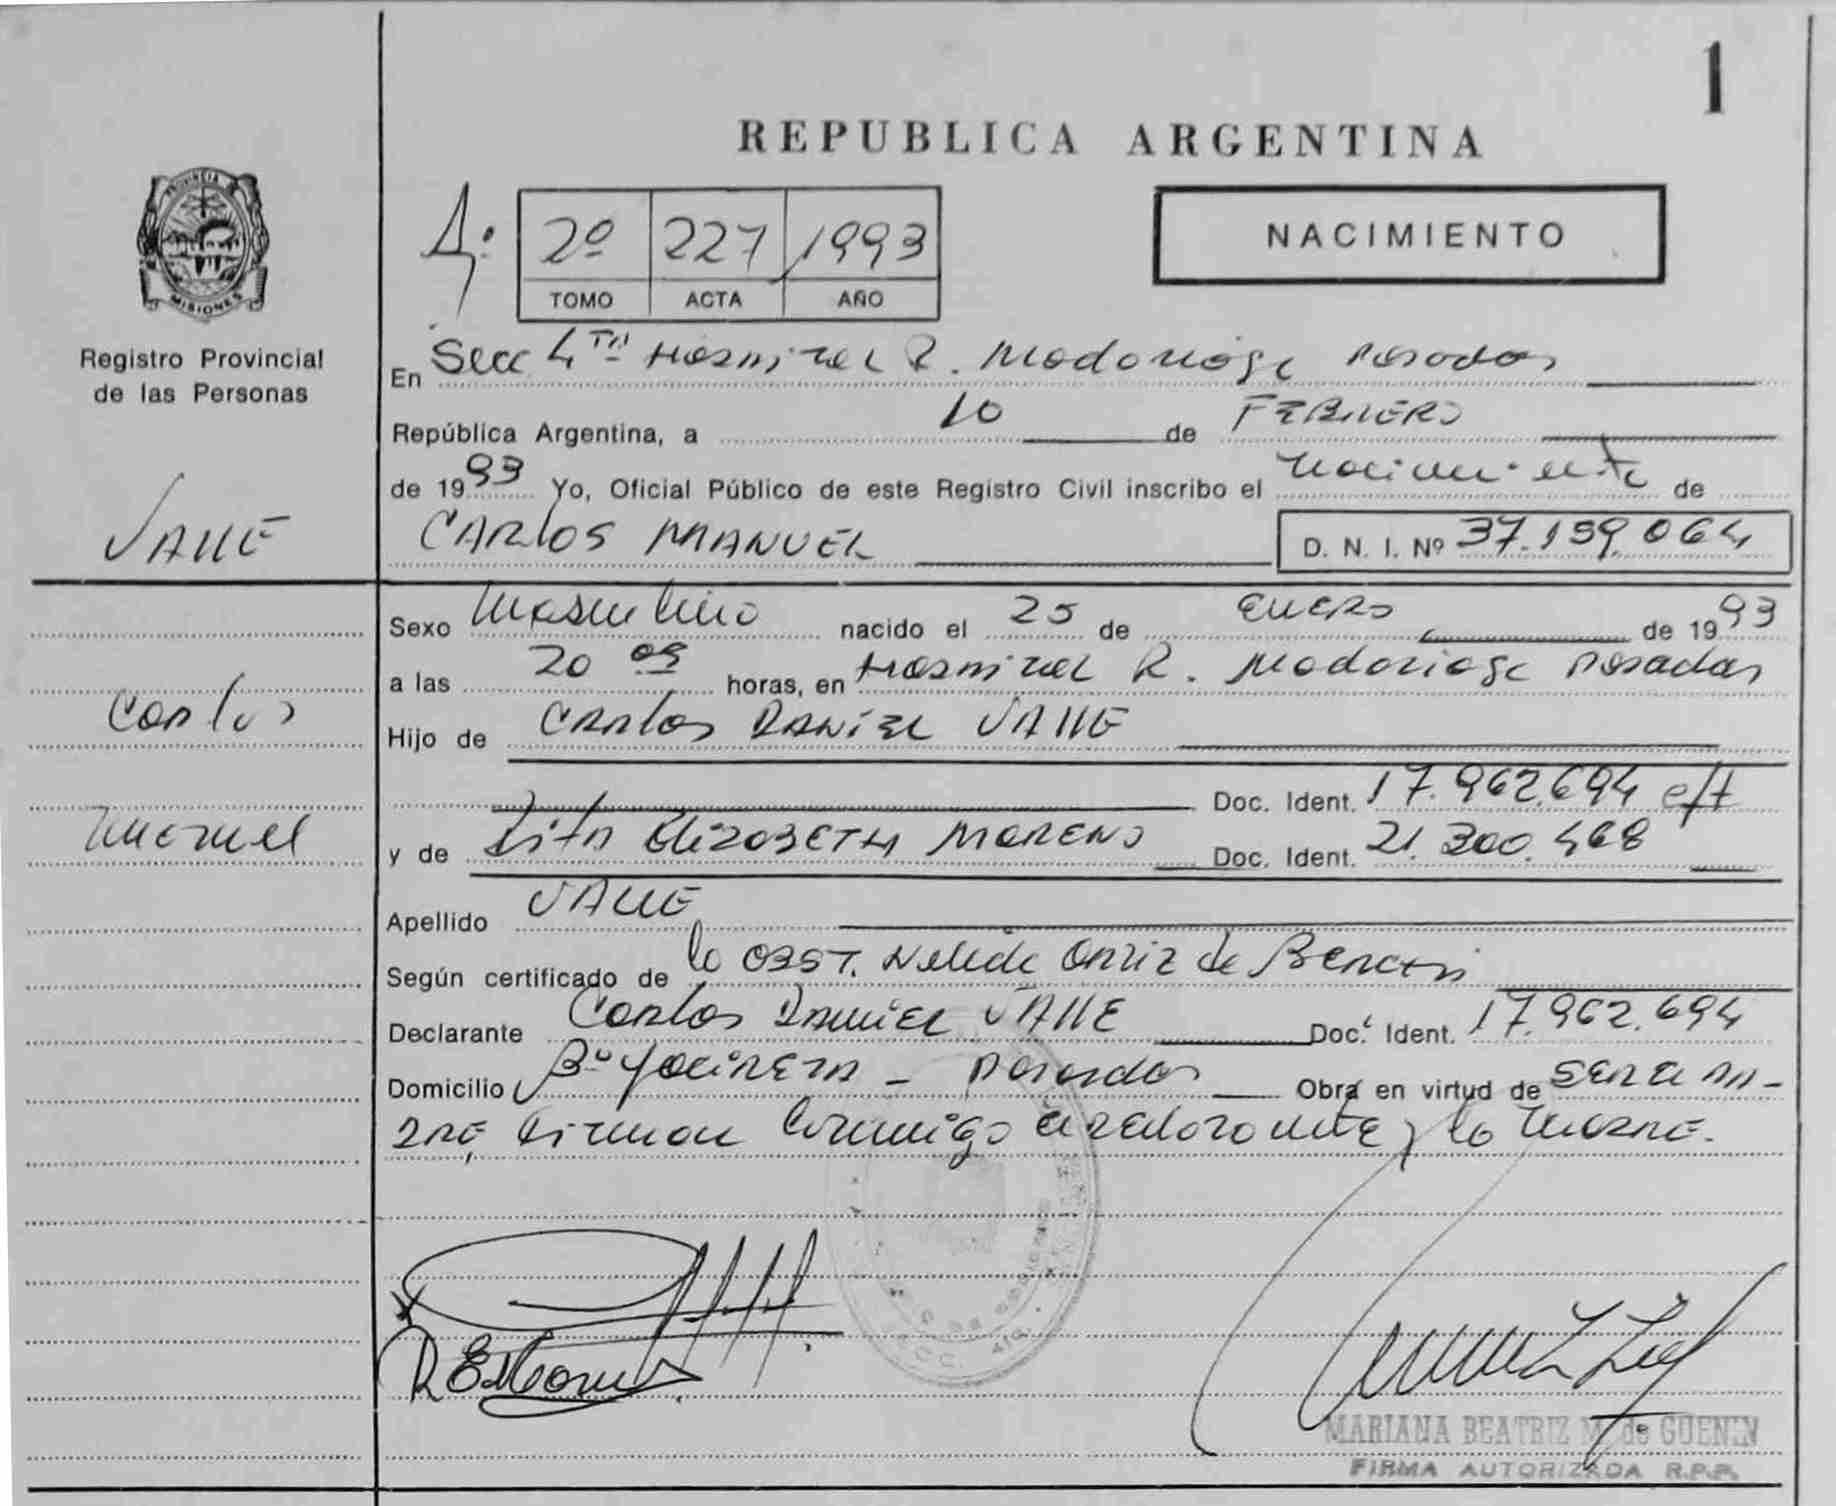 1
REPUBLICA ARGENTINA
PROVINCIA DE
MISIONES
Registro Provincial
de las Personas
2º 227 1993
TOMO ACTA AÑO
NACIMIENTO
En Secc 4ta Hospital R. Madariaga Posadas
República Argentina, a 10 de FEBRERO
de 1993 Yo, Oficial Público de este Registro Civil inscribo el nacimiento de
VALLE
CARLOS MANUEL D. N. I. Nº 37.159.064
Sexo Masculino nacido el 25 de ENERO de 1993
a las 20 horas, en Hospital R. Madariaga Posadas
Carlos
Hijo de CARLOS DANIEL VALLE
Doc. Ident. 17.962.694
Manuel
y de Rita ELIZABETH MORENO Doc. Ident. 21.300.468
Apellido VALLE
Según certificado de la OBST. Nelida Ortiz de
Declarante Carlos DANIEL VALLE Doc. Ident. 17.962.694
Domicilio Bº Yacireta - Posadas Obra en virtud de
firman conmigo el declarante y la madre.
MARIANA BEATRIZ M. de GUENIN
FIRMA AUTORIZADA R.P.P.